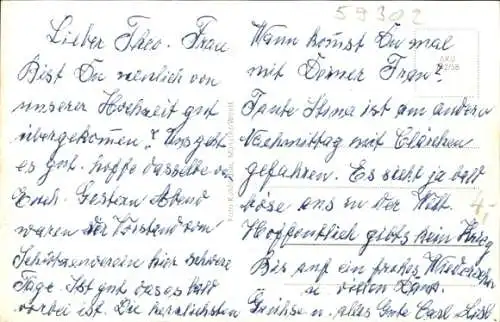 59302
Lieber Theo. Frau
Bist Du neulich von
unserer Hochzeit gut
übergekommen? Uns geht
es gut. hoffe dasselbe von
Euch. Gestern Abend
waren der Vorstand vom
Schützenverein hier schwere
Tage. Ist gut das es bald
vorbei ist. Die herzlichsten
Wann kommst Du mal
mit Deiner Frau?
Tante Stina ist am andern
Nachmittag mit Clärchen
gefahren. Es sieht ja bald
böse aus in der Welt.
Hoffentlich gibts kein Krieg
Bis auf ein frohes Wiedersehn
u. vielen Dank.
Grühse u. alles Gute Carl
4,-